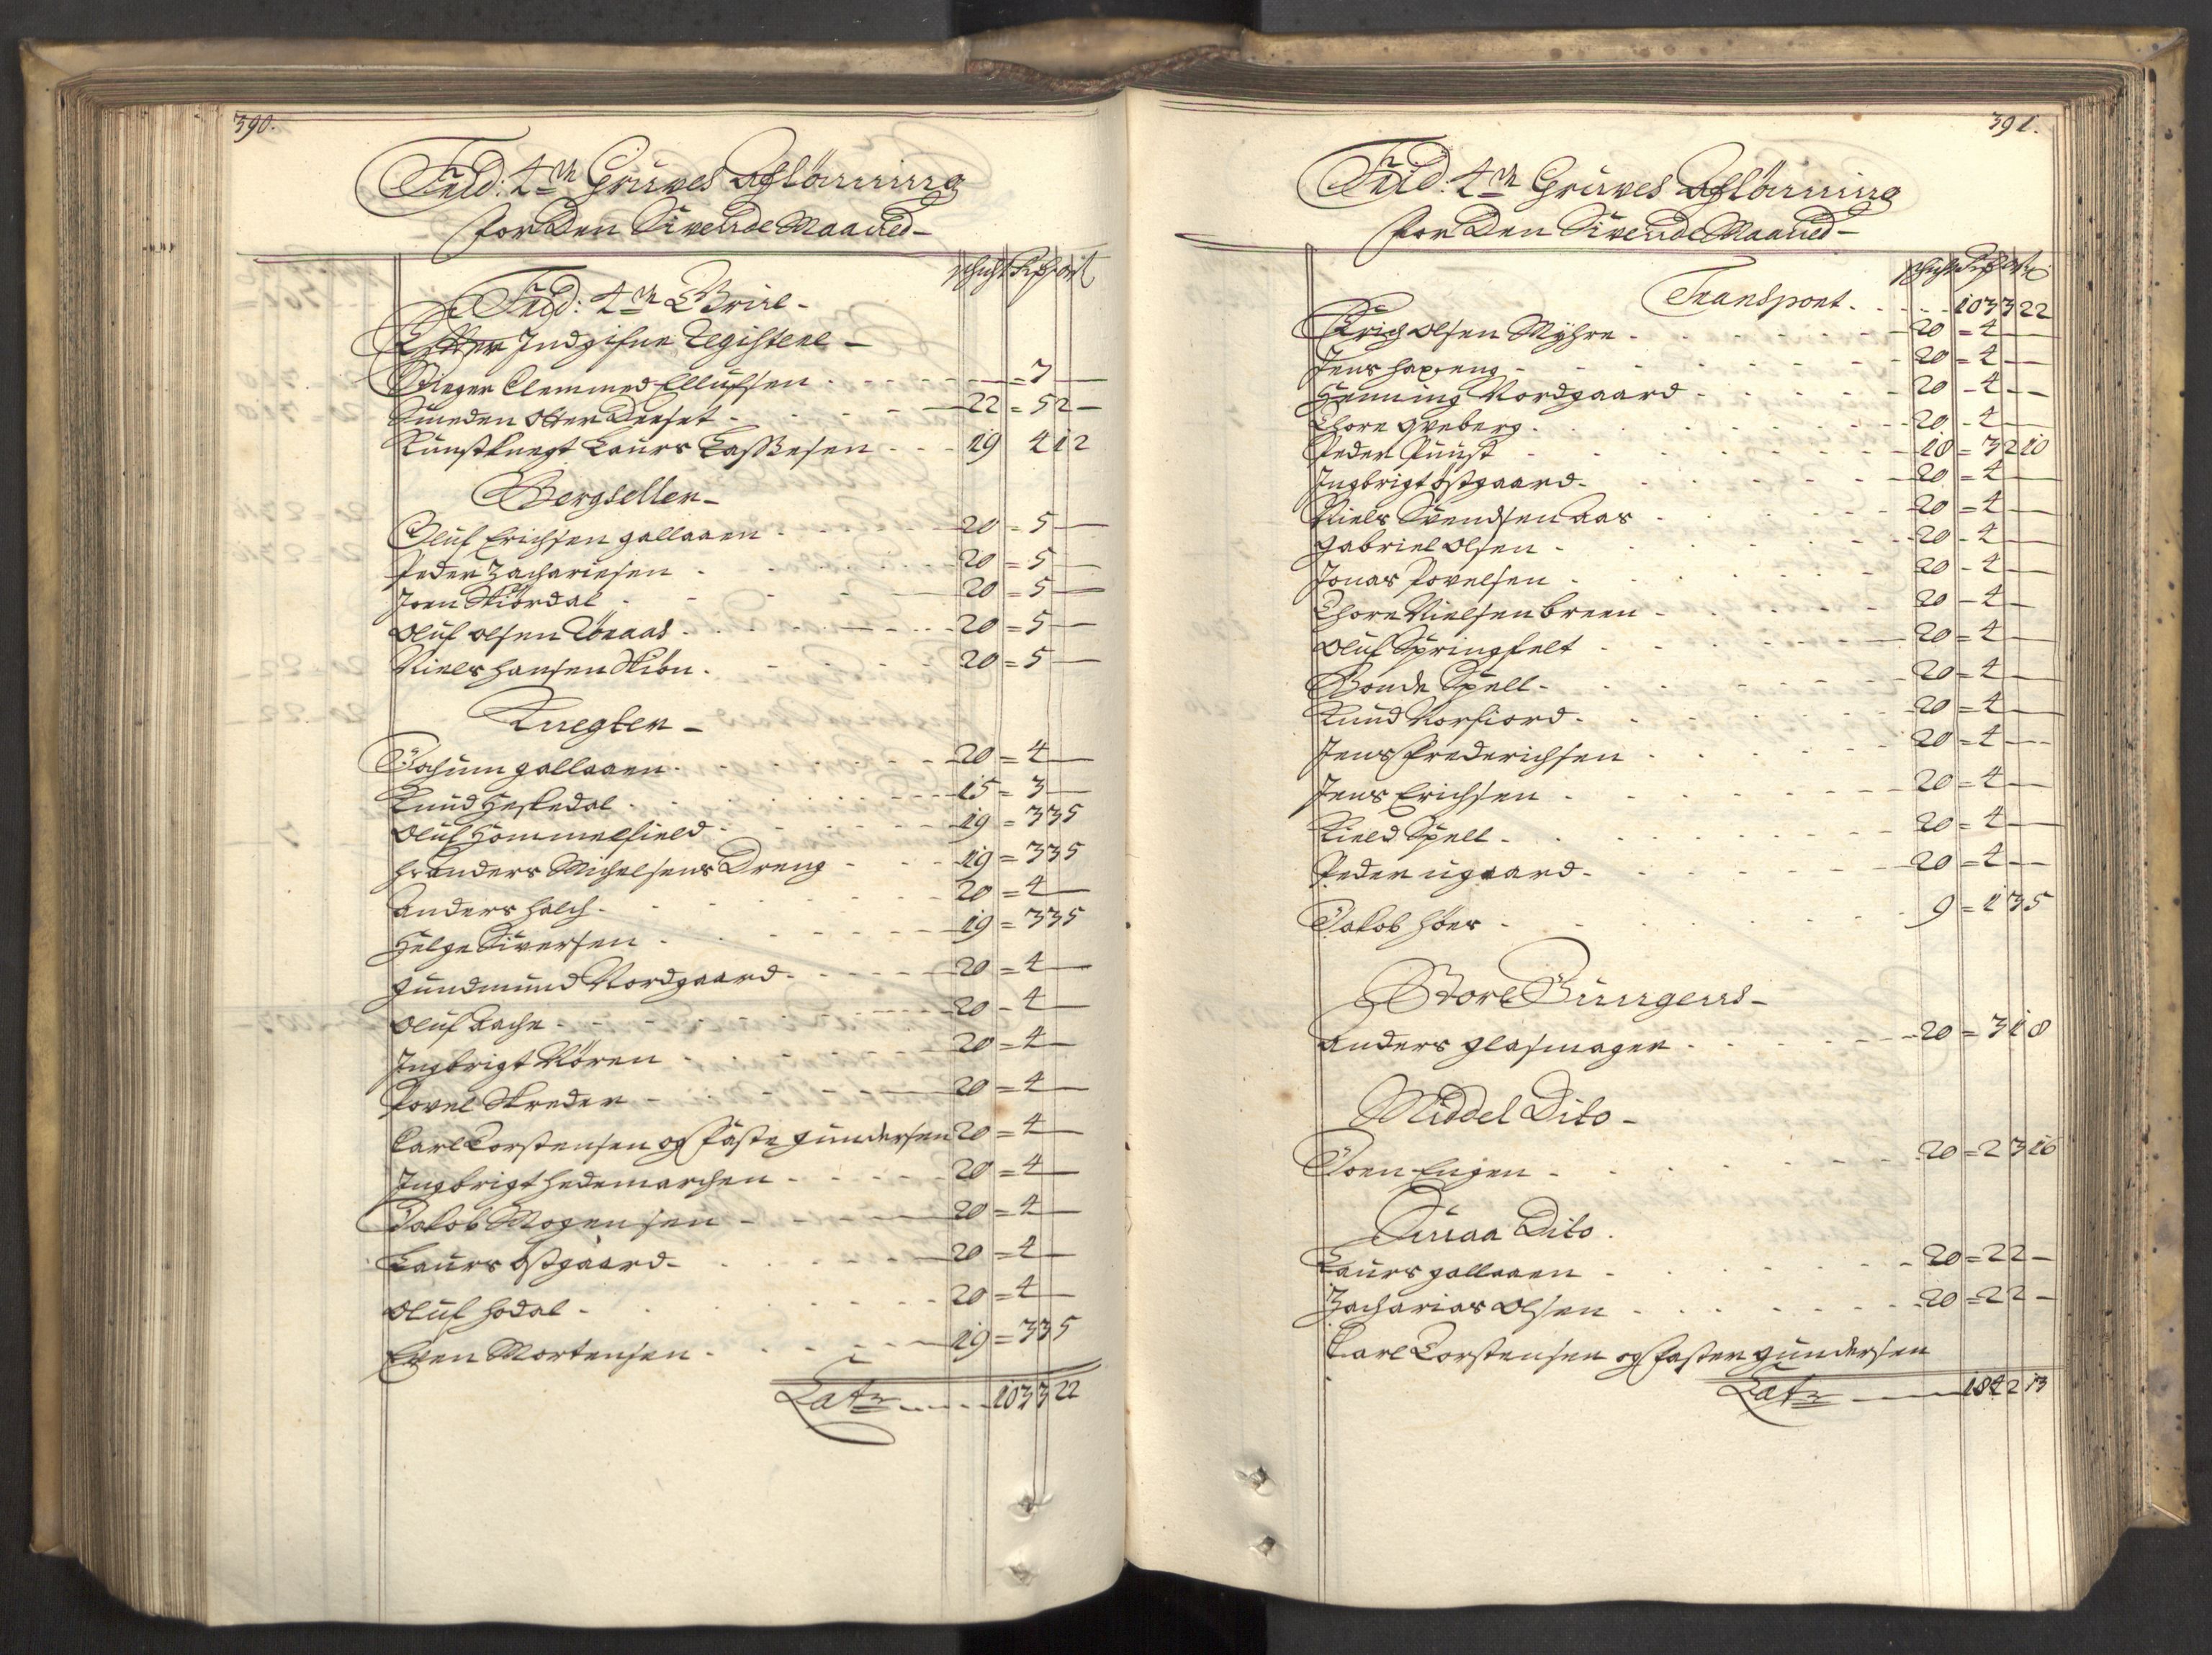 390.
Frid: 4de Gruves Afløning
for Den Sivende Maaned
schicht Rdr ort ß
Frid: 4de Grube
Efter Indgifne Registere
Stieger Clemmed Ellufsen - = 7 -
Smeden Otter Leeset 22 = 5 2 -
Kunstknegt Laurs Lassesen 19 4 1 2
Bergseller
Oluf Erichsen gallaaen 20 = 5 -
Peder Zachariesen 20 = 5 -
Joen Stiördal 20 = 5 -
Oluf olsen Röraas 20 = 5 -
Niels Hansen Stibu 20 = 5 -
Knegter
Jochum gallaaen 20 = 4 -
Knud Heskedal 15 = 3 -
Oluf Hommelfield 19 = 3 3 5
Hr Anders Michelsens Dreng 19 = 3 3 5
Anders Halch 20 = 4 -
Helge Siversen 19 = 3 3 5
Gundmund Nordgaard 20 = 4 -
Oluf Aashe 20 - 4 -
Ingbrigt Røren 20 = 4 -
Povel Skreder 20 = 4 -
Carl Torstensen og Faste Gundersen 20 = 4 -
Ingbrigt Hedemarchen 20 = 4 -
Jakob Mogensen 20 = 4 -
Laurs Østgaard 20 = 4 -
Oluf Hodal 20 = 4 -
Even Mortensen 19 = 3 3 5
Latr 103 3 22
391.
Frid: 4de Gruves Afløning
for Den Sivende Maaned
schicht Rdr ort ß
Transport 103 3 22
Erich olsen Myhre 20 = 4 -
Jens Hareng 20 = 4 -
Henning Nordgaard 20 - 4 -
Thore Gveberg 20 - 4 -
Peder Puust 18 = 3 2 10
Ingbrigt Østgaard 20 = 4 -
Niels Svendsen Aas 20 = 4 -
Gabriel olsen 20 - 4 -
Jonas Povelsen 20 - 4 -
Thore Nielsen Breen 20 - 4 -
Oluf Springfelt 20 = 4 -
Bonde Spell 20 = 4 -
Knud Korsiord 20 = 4 -
Jens Frederichsen 20 = 4 -
Jens Erichsen 20 = 4 -
Kield Spell 20 = 4 -
Peder ugaard 20 = 4 -
Jakob Höer 9 = 1 3 5
Store Jungens
Anders glasmager 20 = 3 1 8
Middel Dito
Joen Engen 20 = 2 3 16
Smaa Dito
Laurs gallaaen 20 = 2 2 -
Zacharias olsen 20 = 2 2 -
Carl Torstensen og Fasten Gundersen
Latr 184 2 13